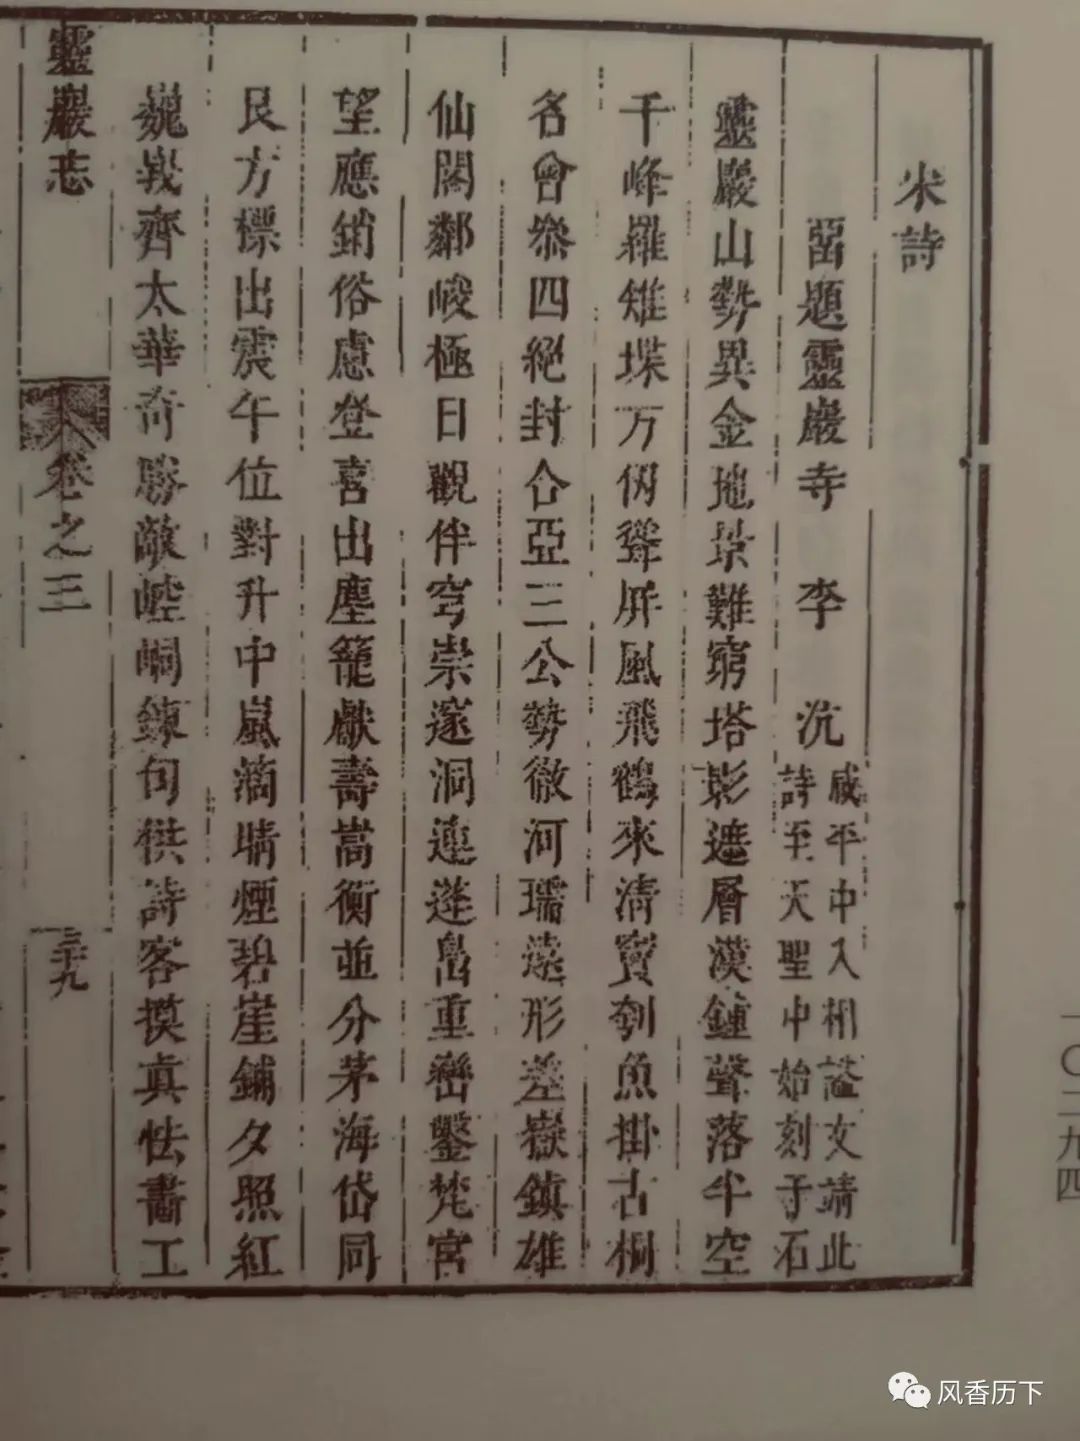 宋詩
畱題靈巖寺　李　沆　咸平中入相謚文靖此
詩至天聖中始刻于石
靈巖山勢異金地景難窮塔影遮層漢鍾聲落半空
千峰羅雉堞万仞聳屏風飛鶴來清竇刳魚掛古桐
名會叅四絕封合亞三公勢徹河壖遠形差嶽鎮雄
仙閣鄰峻極日觀伴穹崇邃洞連蓬島重巒鑿梵宮
望應銷俗慮登喜出塵籠獻壽嵩衡並分茅海岱同
艮方標出震午位對升中嵐滴晴煙碧崖鋪夕照紅
巍峩齊太華奇勝敵崆峒鍊句供詩客摸真怯畵工
靈巖志
卷之三
三十九
一〇二九四
风香历下